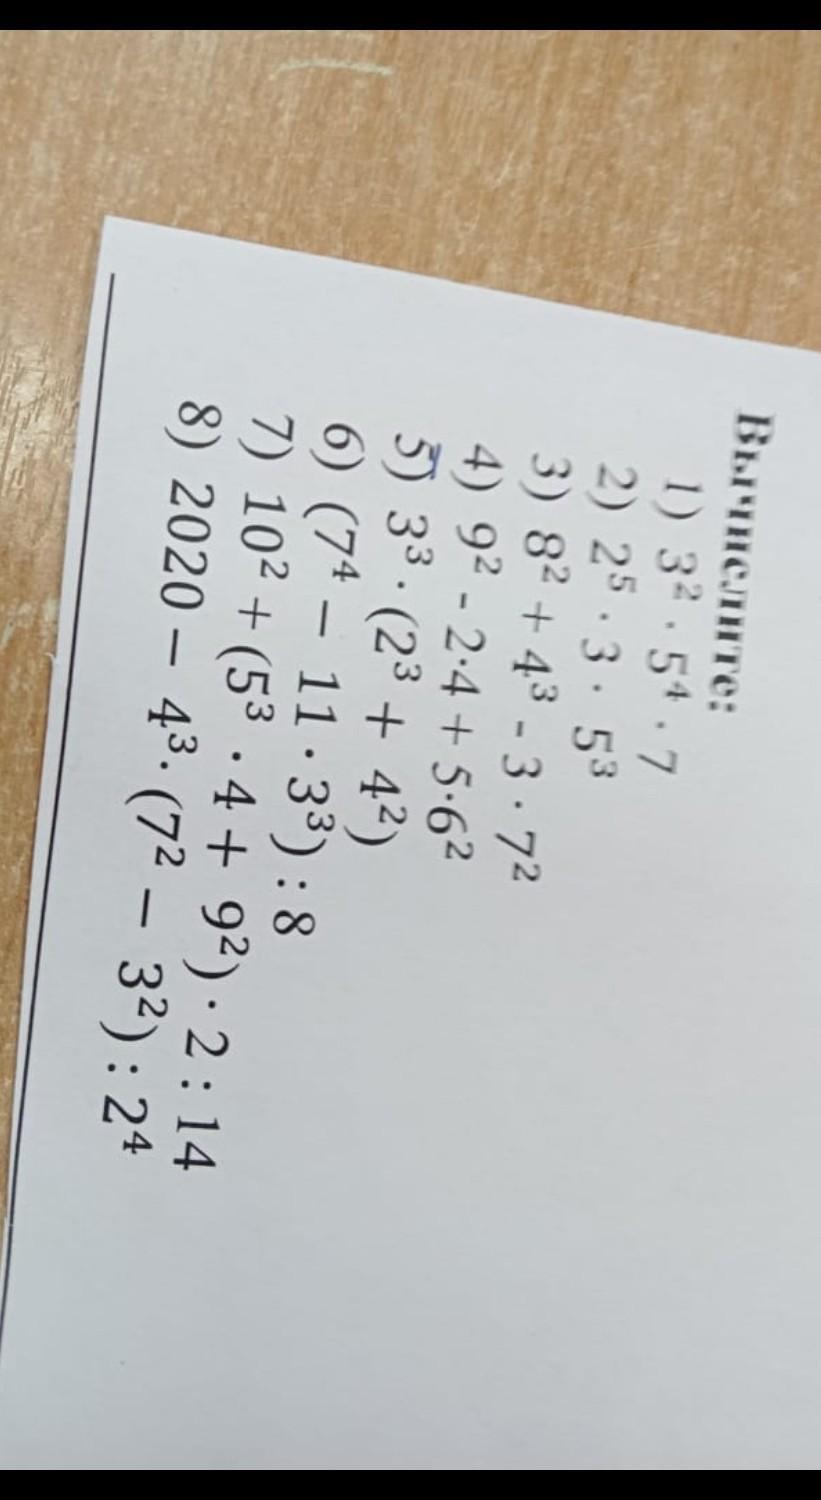 Вычислите:
1) 3² · 5⁴ · 7
2) 2⁵ · 3 · 5³
3) 8² + 4³ - 3 · 7²
4) 9² - 2·4 + 5·6²
5) 3³ · (2³ + 4²)
6) (7⁴ − 11 · 3³) : 8
7) 10² + (5³ · 4 + 9²) · 2 : 14
8) 2020 − 4³· (7² − 3²) : 2⁴